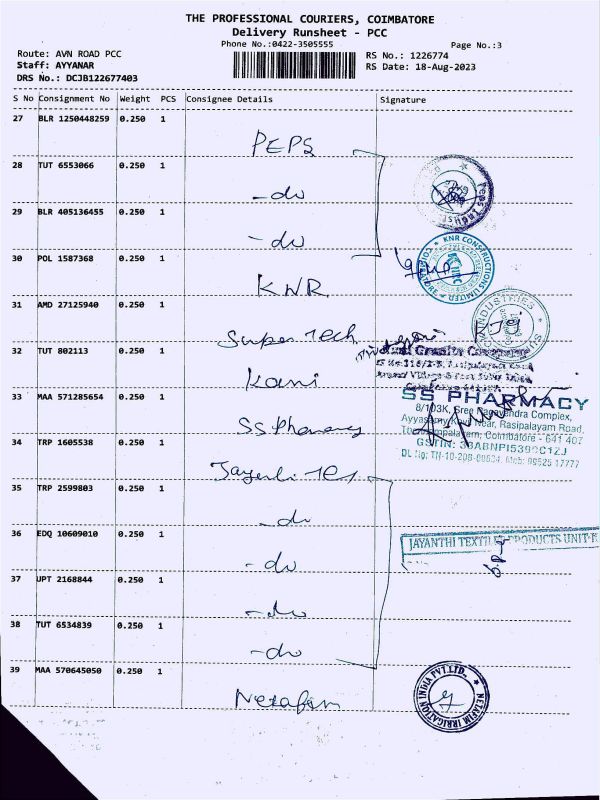 THE PROFESSIONAL COURIERS, COIMBATORE
Delivery Runsheet - PCC
Phone No.:0422-3505555 Page No.:3
Route: AVN ROAD PCC RS No.: 1226774
Staff: AYYANAR RS Date: 18-Aug-2023
DRS No.: DCJB122677403
S No Consignment No Weight PCS Consignee Details Signature
27 BLR 1250448259 0.250 1
PEPS
28 TUT 6553066 0.250 1
-do
29 BLR 405136455 0.250 1
-do
30 POL 1587368 0.250 1
KNR
KNR CONSTRUCTIONS LIMITED
31 AMD 27125940 0.250 1
Super Tech
INDUSTRIES
32 TUT 802113 0.250 1
Kani
33 MAA 571285654 0.250 1
SS Pharmacy
SS PHARMACY
8/103K, Sree Ragavendra Complex,
Near, Rasipalayam Road,
Coimbatore - 641 407
34 TRP 1605538 0.250 1
35 TRP 2599803 0.250 1
-do
36 EDQ 10609010 0.250 1
-do
JAYANTHI TEXTILE PRODUCTS UNIT-
37 UPT 2168844 0.250 1
-do
38 TUT 6534839 0.250 1
-do
39 MAA 570645050 0.250 1
Netafim
NETAFIM IRRIGATION INDIA PVT.LTD.